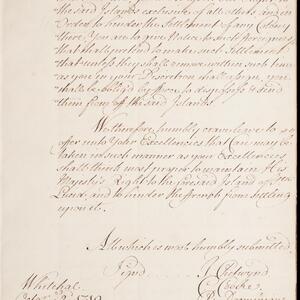 the said Islands exclusive of all others and in
Order to hinder the Settlement of any Colony
there, You are to give Notice to such Foreigners
that shall pretend to make such Settlement
that unless they shall remove within such time
as you in your Discretion shall assign, you
shall be oblig'd by force to dispossess & send
them from off the said Islands.
We therefore humbly crave leave to
offer unto Your Excellencies that Care may be
taken in such manner as your Excellencies
shall think most proper to maintain His
Majesty's Right to the foresaid Island of
Lucia, and to hinder the French from settling
upon it.
All which is most humbly submitted
Sign'd J Chetwynd
Cooke
Whitehal P. Docminique